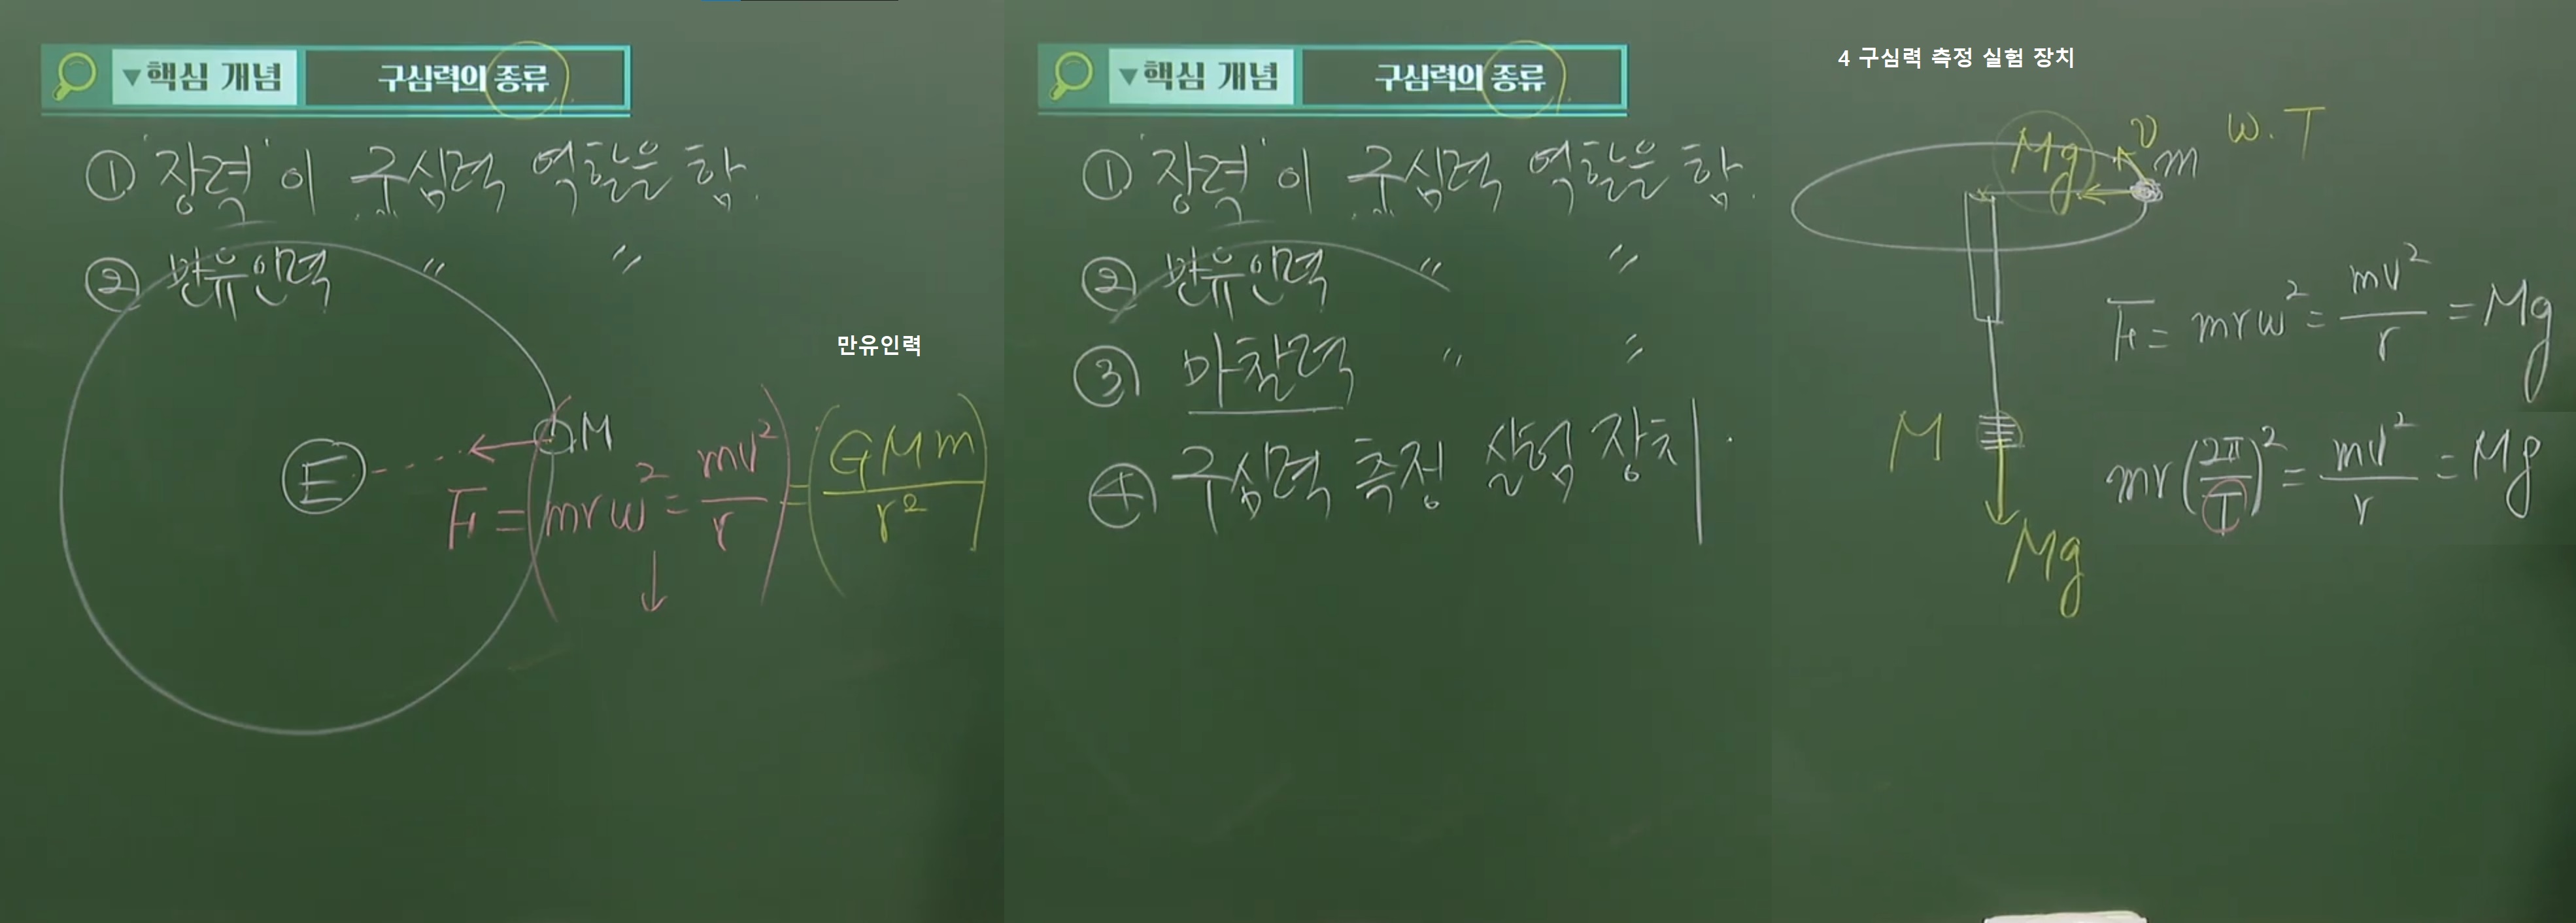 ▼핵심 개념 구심력의 종류
① '장력'이 구심력 역할을 함.
② 만유인력 〃 〃
만유인력
E M
F = (mrω² = mv²/r) = (GMm/r²)
▼핵심 개념 구심력의 종류
① '장력'이 구심력 역할을 함.
② 만유인력 〃 〃
③ 마찰력 〃 〃
④ 구심력 측정 실험 장치
4 구심력 측정 실험 장치
Mg v m ω. T
F = mrω² = mv²/r = Mg
M
mr(2π/T)² = mv²/r = Mg
Mg